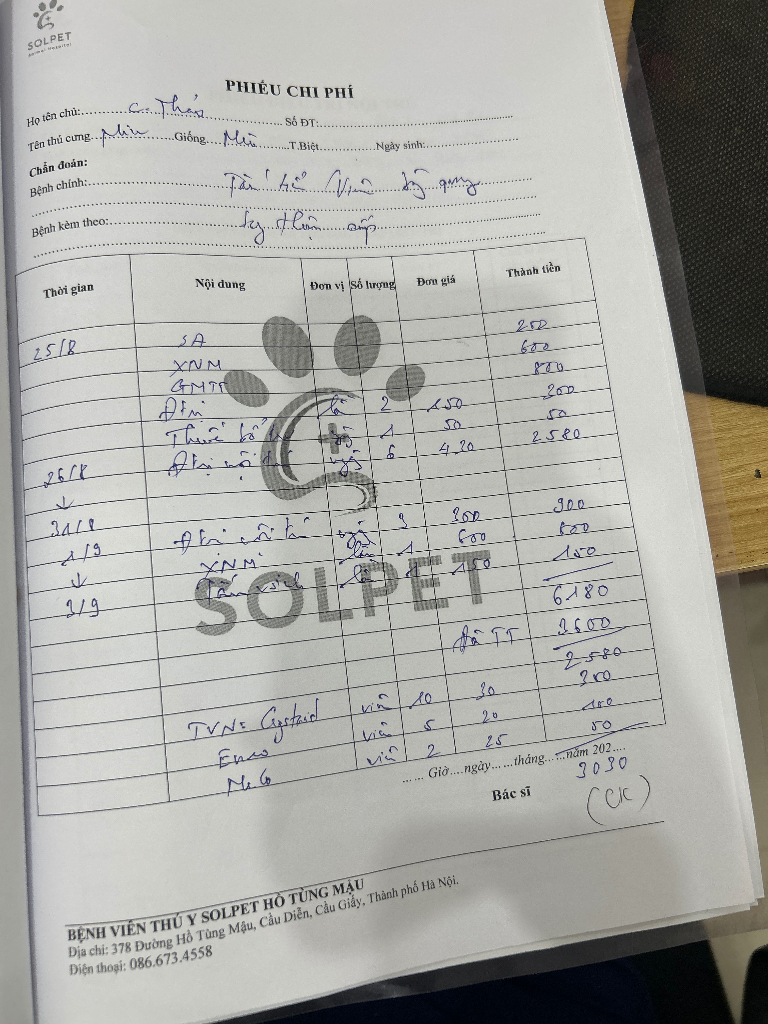 SOLPET
Animal Hospital
PHIẾU CHI PHÍ
Họ tên chủ: C. Thảo Số ĐT:
Tên thú cưng Miu Giống Mèo T.Biệt Ngày sinh:
Chẩn đoán:
Bệnh chính: Tắc bể Viêm bàng quang
Bệnh kèm theo: Suy thận cấp
Thời gian Nội dung Đơn vị Số lượng Đơn giá Thành tiền
25/8 SA 250
XNM 600
GMTT 800
Đtrị lần 2 150 300
Thuốc bổ 1 50 50
26/8 Đtrị nội trú ngày 6 430 2580
↓
31/8
1/9 Đtrị nội trú ngày 3 300 900
↓ XNM lần 1 600 600
3/9 Tắm vsinh lần 1 150 150
6180
Đã TT 3600
2580
TVN: Cystaid viên 10 30 300
Enro viên 5 20 100
Melo viên 2 25 50
Giờ ngày tháng năm 202
3030
Bác sĩ
(CK)
BỆNH VIỆN THÚ Y SOLPET HỒ TÙNG MẬU
Địa chỉ: 378 Đường Hồ Tùng Mậu, Cầu Diễn, Cầu Giấy, Thành phố Hà Nội.
Điện thoại: 086.673.4558
SOLPET